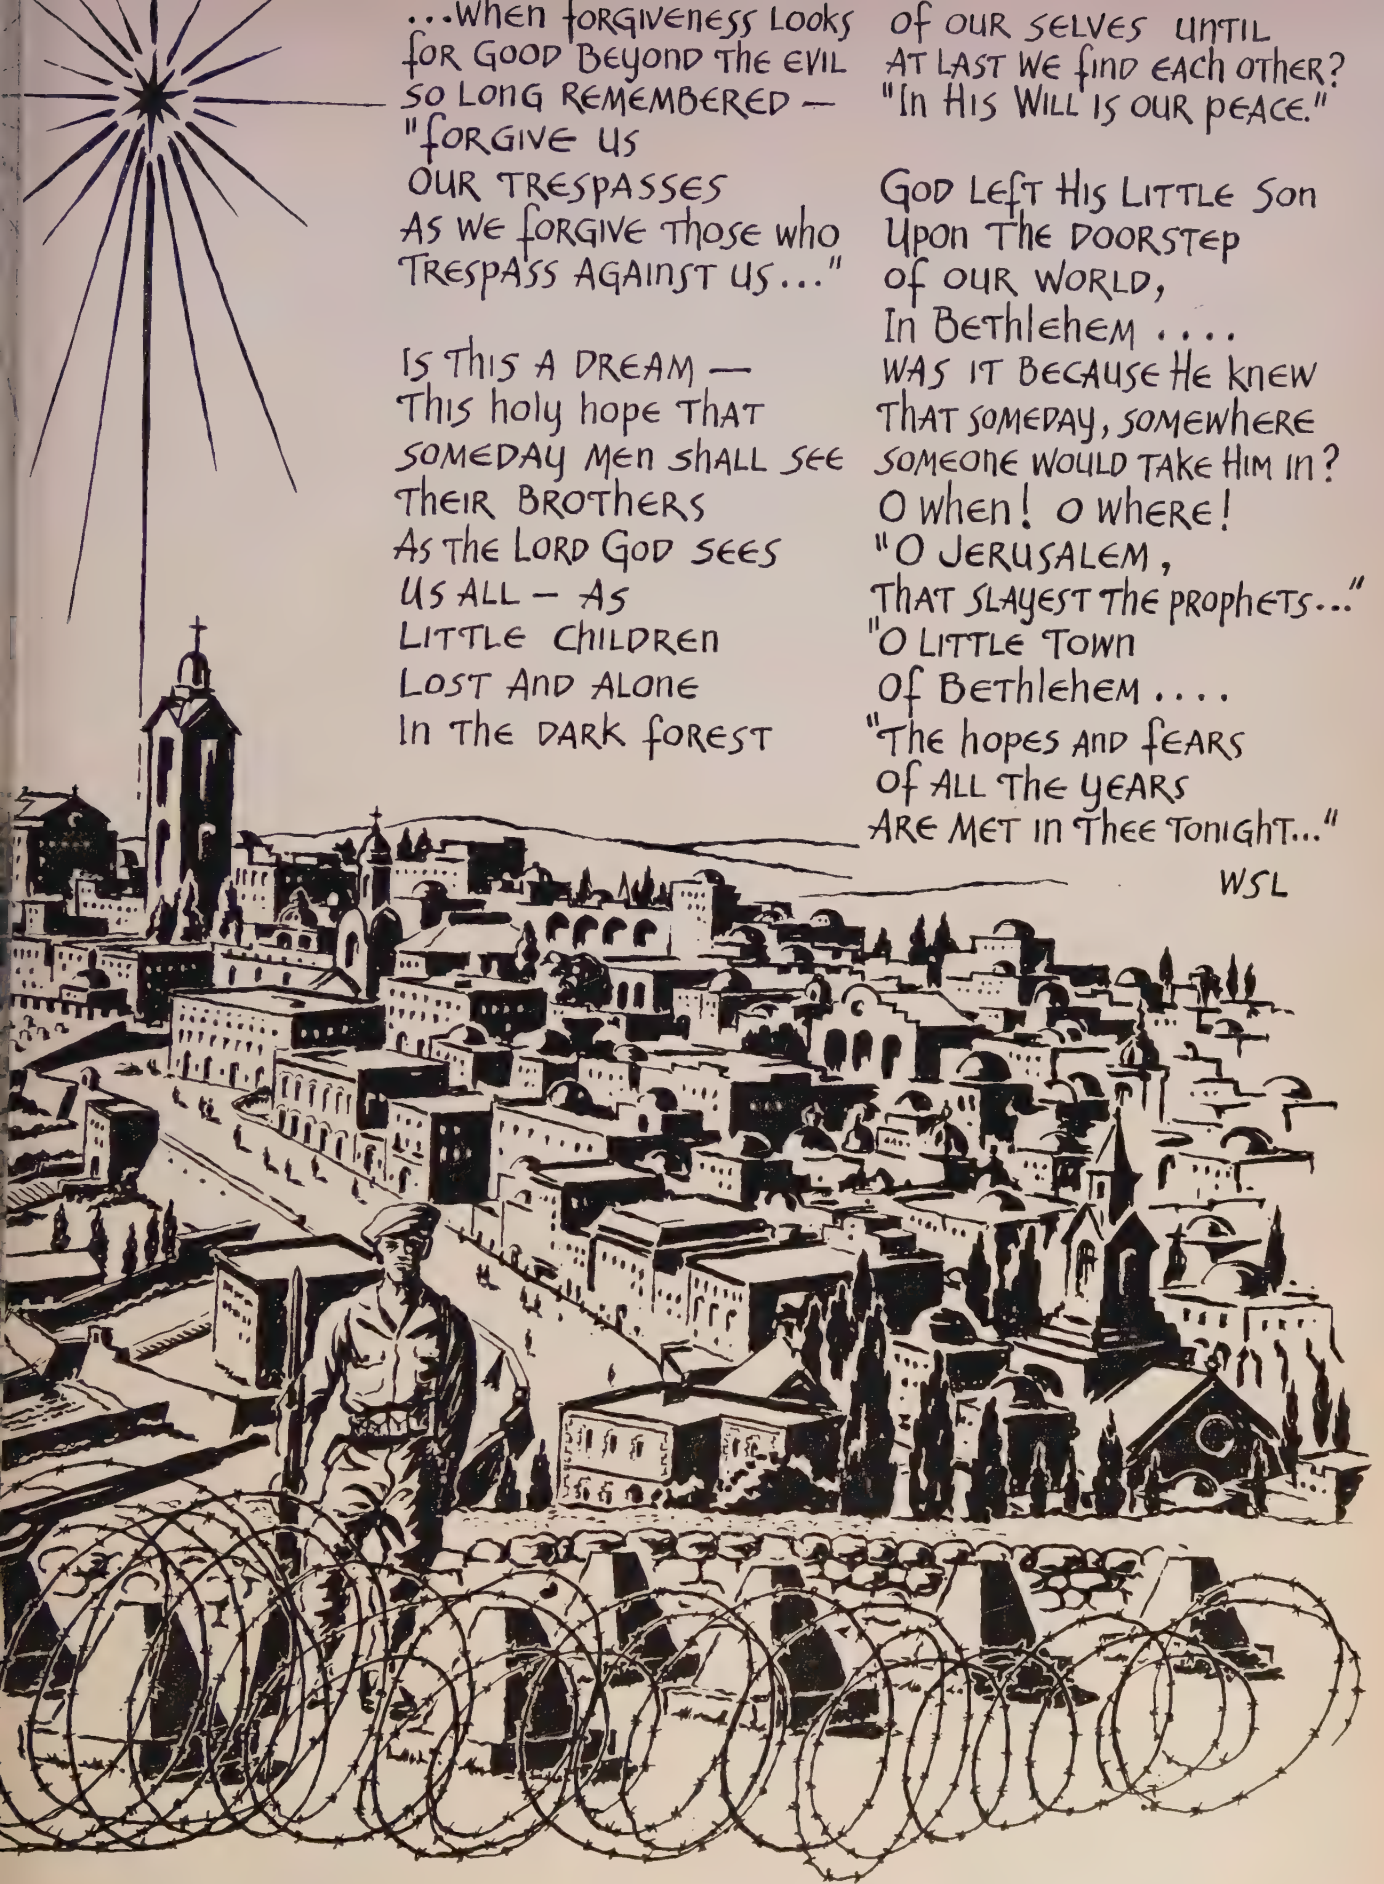 ...When forgiveness looks
for good beyond the evil
so long remembered —
"forgive us
our trespasses
as we forgive those who
trespass against us..."
Is this a dream —
This holy hope that
someday men shall see
their brothers
As the Lord God sees
us all — as
little children
lost and alone
In the dark forest
of our selves until
at last we find each other?
"In His Will is our peace."
God left His little Son
Upon the doorstep
of our world,
In Bethlehem ....
was it because He knew
that someday, somewhere
someone would take Him in?
O when! O where!
"O Jerusalem,
that slayest the prophets..."
"O little town
Of Bethlehem ....
"The hopes and fears
Of all the years
Are met in thee tonight..."
WSL